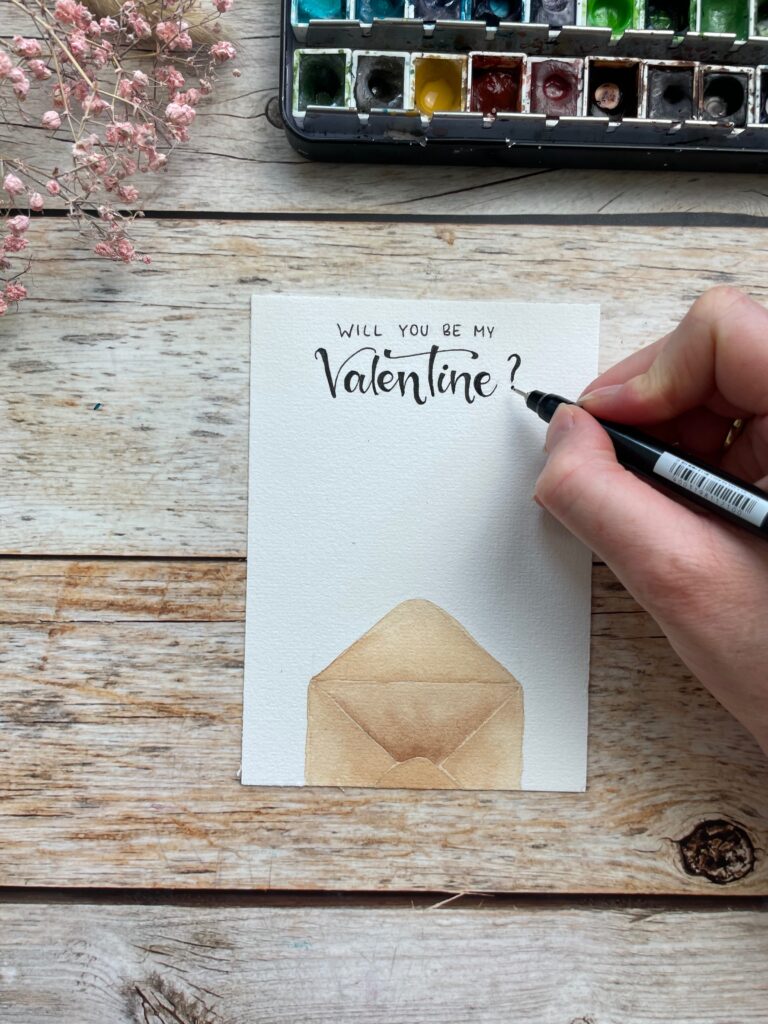 WILL YOU BE MY
Valentine?